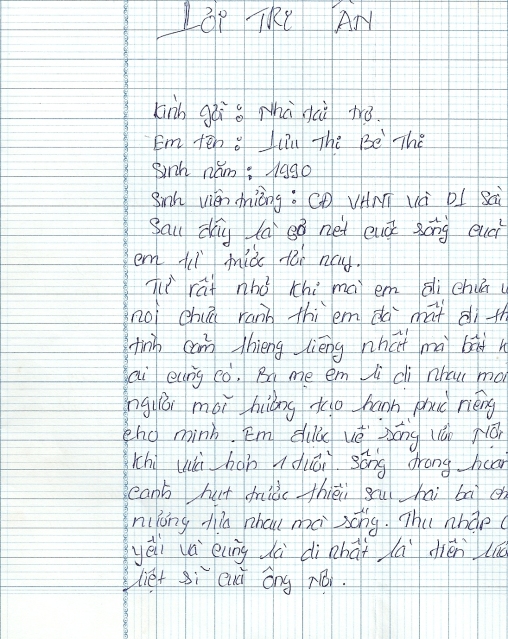 LỜI TRI ÂN
Kính gửi : Nhà tài trợ.
Em tên : Lưu Thị Bé Thi
Sinh năm : 1990
Sinh viên trường : CĐ VHNT và Dl Sài
Sau đây là sơ nét cuộc sống cuả
em từ trước tới nay.
Từ rất nhỏ khi mà em đi chưa
noí chưa rành thì em đã mất đi
tình cảm thiêng liêng nhất mà bất
ai cũng có. Ba mẹ em li dị nhau mỗi
người mỗi hướng tạo hạnh phúc riêng
cho mình. Em được về sống với Nội
khi vừa hơn 1 tuổi. Sống trong hoàn
cảnh hụt trước thiếu sau hai bà
nương tựa nhau mà sống. Thu nhập
yếu và cũng là di nhất là tiền
liệt sĩ cuả ông Nội.